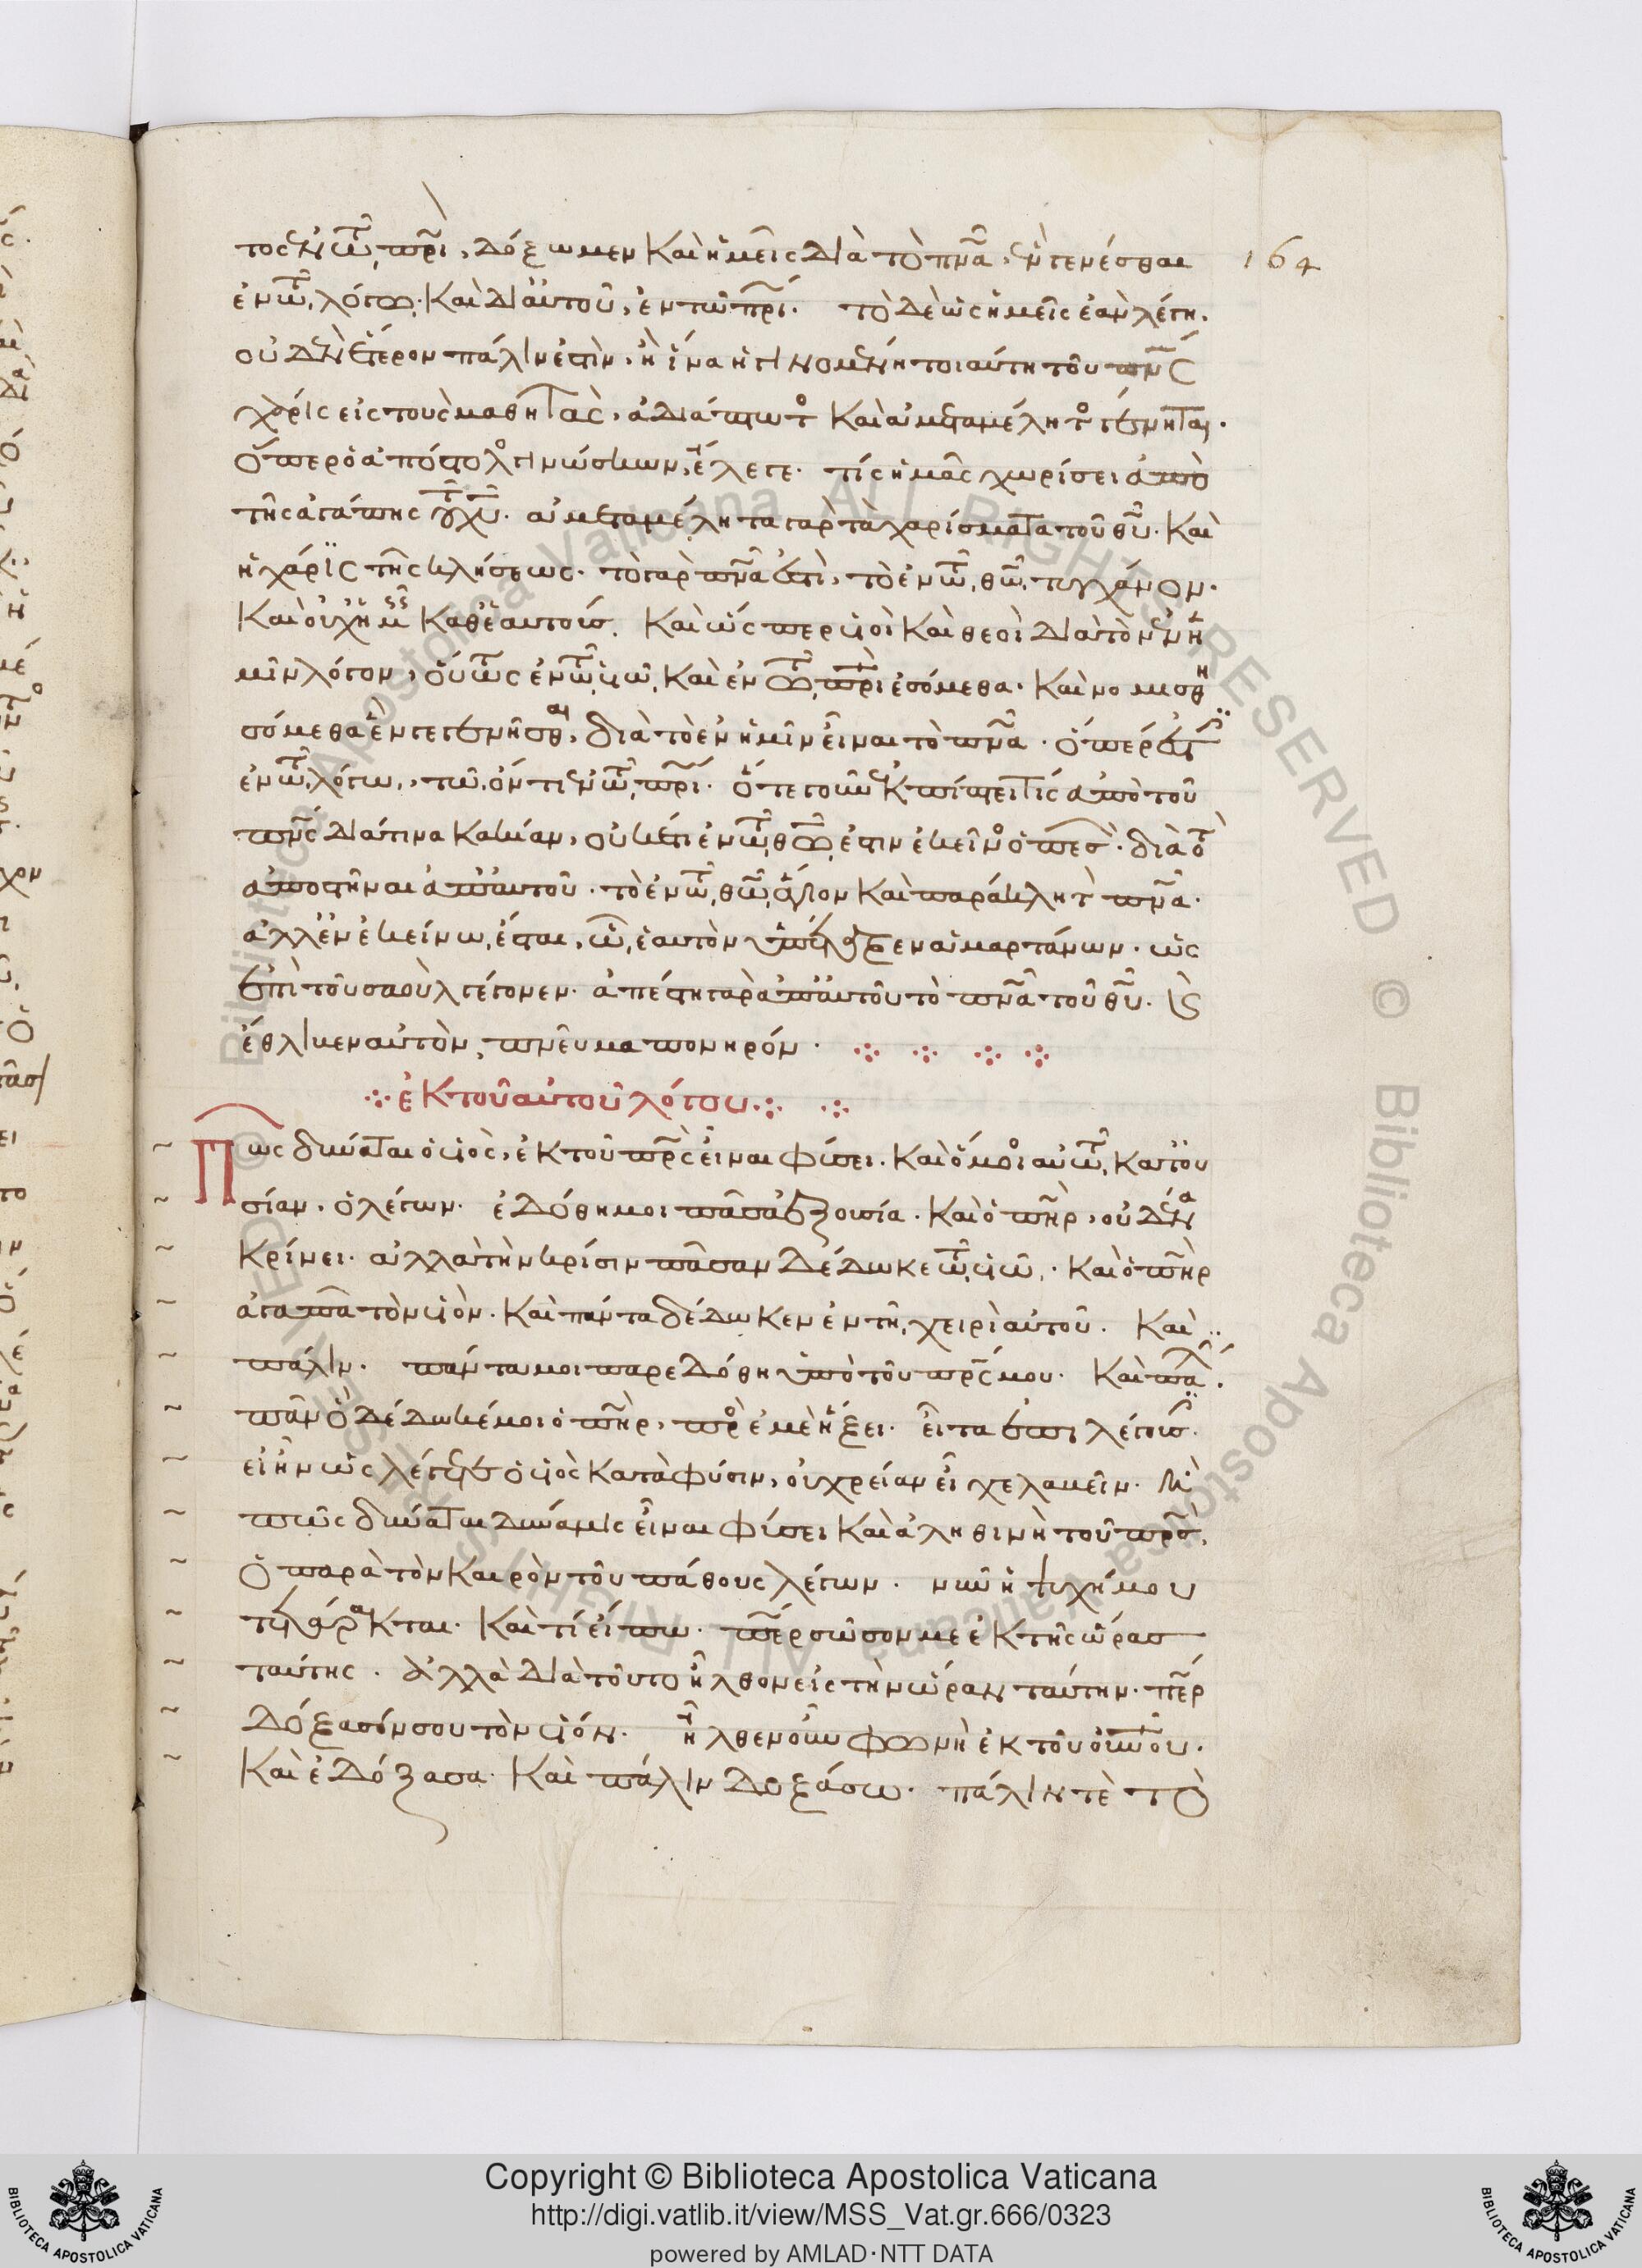 τος ἐν τῶ πρι, δόξωμεν καὶ ἡμεῖς διὰ τὸ πνα, ἐν γενέσθαι
ἐν τῶ λόγω· καὶ δι' αὐτοῦ, ἐν τῶ πρι. τὸ δὲ ὡς ἡμεῖς ἐὰν λέγη.
οὐδὲν ἕτερον πάλιν ἐστὶν, ἢ ἵνα ἡ γινομένη τοιαύτη τοῦ πνς
χάρις εἰς τοὺς μαθητὰς, ἀδιάπτωτος καὶ ἀμεταμέλητος γένηται.
ὅπερ ὁ ἀπόστολος γινώσκων, ἔλεγε. τίς ἡμᾶς χωρίσει ἀπὸ
τῆς ἀγάπης τοῦ χυ. ἀμεταμέλητα γὰρ τὰ χαρίσματα τοῦ θυ. καὶ
ἡ χάρις τῆς κλήσεως. τὸ γὰρ πνα ἐστὶ, τὸ ἐν τῶ θω τυγχάνον.
καὶ οὐχ ἡμεῖς καθ' ἑαυτούς. καὶ ὥσπερ υἱοὶ καὶ θεοὶ διὰ τὸν ἐν ἡ
μῖν λόγον, οὕτως ἐν τῶ υἱῶ, καὶ ἐν τῶ πρι ἐσόμεθα. καὶ νομισθη
σόμεθα ἓν γεγενῆσθαι, διὰ τὸ ἐν ἡμῖν εἶναι τὸ πνα. ὅπερ ἐστὶν
ἐν τῶ λόγω, τῶ ὄντι ἐν τῶ πρι. ὅτε γοῦν ἐκπίπτει τίς ἀπὸ τοῦ
πνς διά τινα κακίαν, οὐκέτι ἐν τῶ θω ἐστιν ἐκεῖνος ὁ πεσὼν. διὰ τὸ
ἀποστῆναι ἀπ' αὐτοῦ. τὸ ἐν τῶ θω ἅγιον καὶ παράκλητον πνα.
ἀλλ' ἐν ἐκείνω ἔσται, ὧ ἑαυτὸν ὑπέταξεν ἁμαρτάνων. ὡς
ἐπὶ τοῦ σαοὺλ γέγονεν. ἀπέστη γὰρ ἀπ' αὐτοῦ τὸ πνα τοῦ θυ. καὶ
ἔθλιβεν αὐτὸν, πνεῦμα πονηρόν.
ἐκ τοῦ αὐτοῦ λόγου
Πῶς δύναται ὁ υἱὸς, ἐκ τοῦ πρς εἶναι φύσει. καὶ ὅμοιος αὐτῶ κατ' οὐ
σίαν. ὁ λέγων. ἐδόθη μοι πᾶσα ἐξουσία. καὶ ὁ πηρ, οὐδένα
κρίνει. ἀλλὰ τὴν κρίσιν πᾶσαν δέδωκε τῶ υἱῶ. καὶ ὁ πηρ
ἀγαπᾶ τὸν υἱόν. καὶ πάντα δέδωκεν ἐν τῆ χειρὶ αὐτοῦ. καὶ
πάλιν. πάντα μοι παρεδόθη ὑπὸ τοῦ πρς μου. καὶ πάλιν.
πᾶν ὃ δέδωκέ μοι ὁ πηρ, πρὸς ἐμὲ ἥξει. εἶτα ἐπιλέγουσιν.
εἰ ἦν ὡς λέγετε ὁ υἱὸς κατὰ φύσιν, οὐ χρείαν εἶχε λαβεῖν. ἢ
πῶς δύναται δύναμις εἶναι φύσει καὶ ἀληθινὴ τοῦ πρς,
ὁ παρὰ τὸν καιρὸν τοῦ πάθους λέγων. νῦν ἡ ψυχή μου
τετάρακται. καὶ τί εἴπω. περ σῶσον με ἐκ τῆς ὥρας
ταύτης. ἀλλὰ διὰ τοῦτο ἦλθον εἰς τὴν ὥραν ταύτην. περ
δόξασόν σου τὸν υἱόν. ἦλθεν οὖν φωνὴ ἐκ τοῦ οὐνοῦ.
καὶ ἐδόξασα. καὶ πάλιν δοξάσω. πάλιν τὲ τὸ
164
Copyright © Biblioteca Apostolica Vaticana
http://digi.vatlib.it/view/MSS_Vat.gr.666/0323
powered by AMLAD·NTT DATA